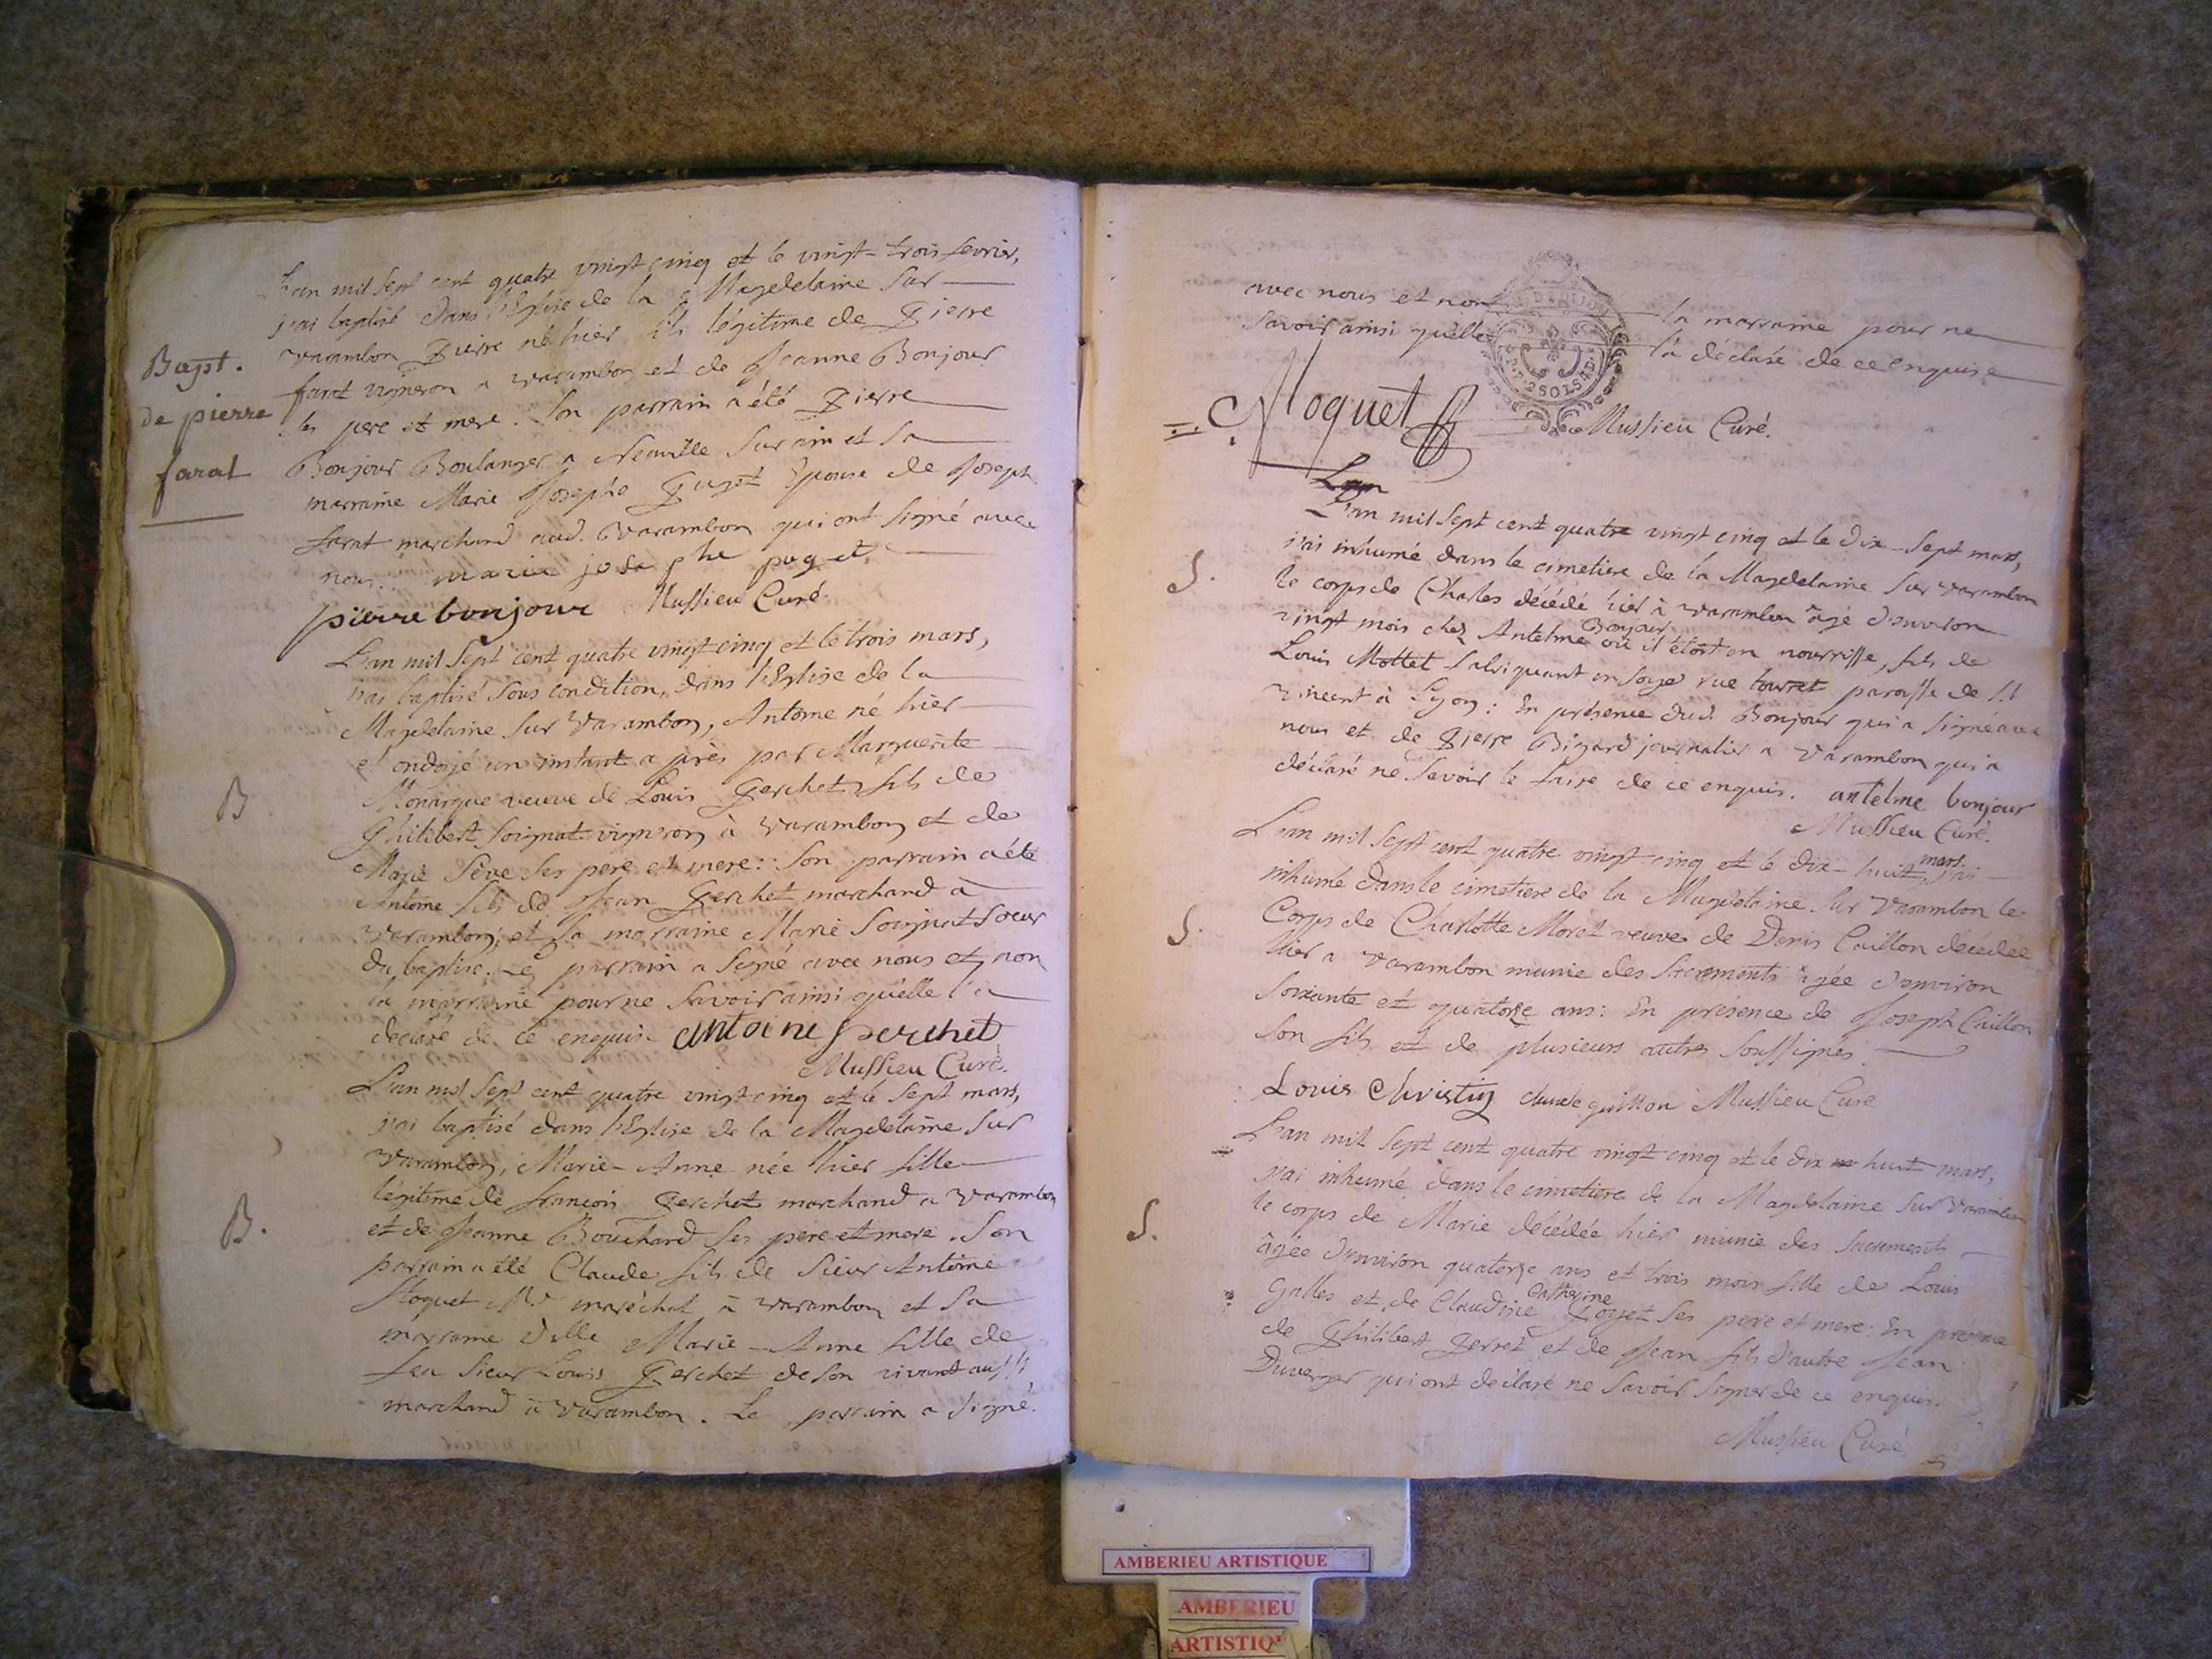 L'an mil sept cent quatre vingt cinq et le vingt-trois fevrier,
j'ai baptisé dans l'Eglise de la Magdelaine sur
varambon Pierre né hier fils légitime de Pierre
farat vigneron a varambon et de Jeanne Bonjour
ses pere et mere. Son parrain a été Pierre
Bonjour Boulanger a Neuville sur ain et sa
marraine Marie Josephe Puget Epouse de Joseph
farat marchand aud. Varambon qui ont signé avec
nous. marie josephe puget
pierre bonjour Mussieu Curé.
Bapt.
de pierre
farat
L'an mil sept cent quatre vingt cinq et le trois mars,
j'ai baptisé sous condition, dans l'Eglise de la
Magdelaine sur Varambon, Antoine né hier
et ondoyé un instant après par Marguerite
Monarque veuve de Louis Perchet, fils de
Philibert Soignat vigneron à varambon et de
Marie Sève ses pere et mere: Son parrain a été
Antoine fils de Jean Perchet marchand à
varambon, et sa marraine Marie Soignat soeur
du baptisé. Le parrain a signé avec nous et non
la marraine pour ne savoir ainsi qu'elle l'a
declaré de ce enquise antoine perchet
Mussieu Curé.
B
L'an mil sept cent quatre vingt cinq et le sept mars,
j'ai baptisé dans l'Eglise de la Magdelaine sur
varambon, Marie-Anne née hier fille
légitime de françois Perchet marchand a varambon
et de Jeanne Bouchard ses pere et mere. Son
parrain a été Claude fils de sieur Antoine
Noquet maréchal à varambon et sa
marraine Dlle Marie-Anne fille de
feu sieur Louis Perchet de son vivant aussi
marchand à varambon. Le parrain a signé
B.
avec nous et non la marraine pour ne
savoir ainsi qu'elle l'a déclaré de ce enquise
2 SOLS
Noquet Mussieu Curé.
L'an mil sept cent quatre vingt cinq et le dix-sept mars,
j'ai inhumé dans le cimetiere de la Magdelaine sur varambon
le corps de Charles décédé hier à varambon âgé d'environ
vingt mois chez Antelme Bonjour où il étoit en nourrisse, fils de
Louis Mottet fabriquant en soye rue tourret paroisse de St
vincent à Lyon: En présence dud. Bonjour qui a signé avec
nous et de Pierre Bizard journalier a varambon qui a
déclaré ne savoir le faire de ce enquis. antelme bonjour
Mussieu Curé.
S.
L'an mil sept cent quatre vingt cinq et le dix-huit mars, j'ai
inhumé dans le cimetiere de la Magdelaine sur Varambon le
Corps de Charlotte Morel veuve de Denis Caillon décédée
hier a varambon munie des sacrements âgée d'environ
soixante et quatorze ans: En présence de Joseph Caillon
son fils et de plusieurs autres soussignés.
S.
Louis Christin claude guitton Mussieu Curé
L'an mil sept cent quatre vingt cinq et le dix huit mars,
j'ai inhumé dans le cimetiere de la Magdelaine sur varambon
le corps de Marie décédée hier munie des sacrements
âgée d'environ quatorze ans et trois mois fille de Louis
Galles et de Claudine Catherine ses pere et mere: En presence
de Philibert Perret et de Jean fils d'autre Jean
Duverger qui ont déclaré ne savoir signer de ce enquis.
Mussieu Curé.
S.
AMBERIEU ARTISTIQUE
AMBERIEU
ARTISTIQ